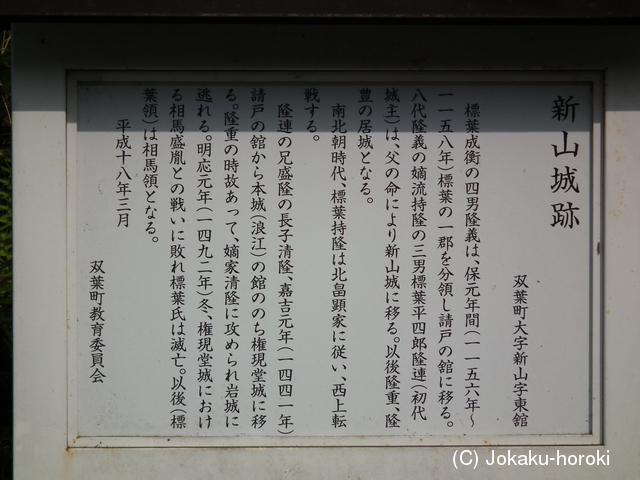 新山城跡
双葉町大字新山字東舘
標葉成衡の四男隆義は、保元年間(一一五六年～
一一五八年)標葉の一郡を分領し請戸の舘に移る。
八代隆義の嫡流持隆の三男標葉平四郎隆連(初代
城主)は、父の命により新山城に移る。以後隆重、隆
豊の居城となる。
南北朝時代、標葉持隆は北畠顕家に従い、西上転
戦する。
隆連の兄盛隆の長子清隆、嘉吉元年(一四四一年)
請戸の舘から本城(浪江)の館ののち権現堂城に移
る。隆重の時故あって、嫡家清隆に攻められ岩城に
逃れる。明応元年(一四九二年)冬、権現堂城におけ
る相馬盛胤との戦いに敗れ標葉氏は滅亡。以後(標
葉領)は相馬領となる。
平成十八年三月
双葉町教育委員会
(C) Jokaku-horoki